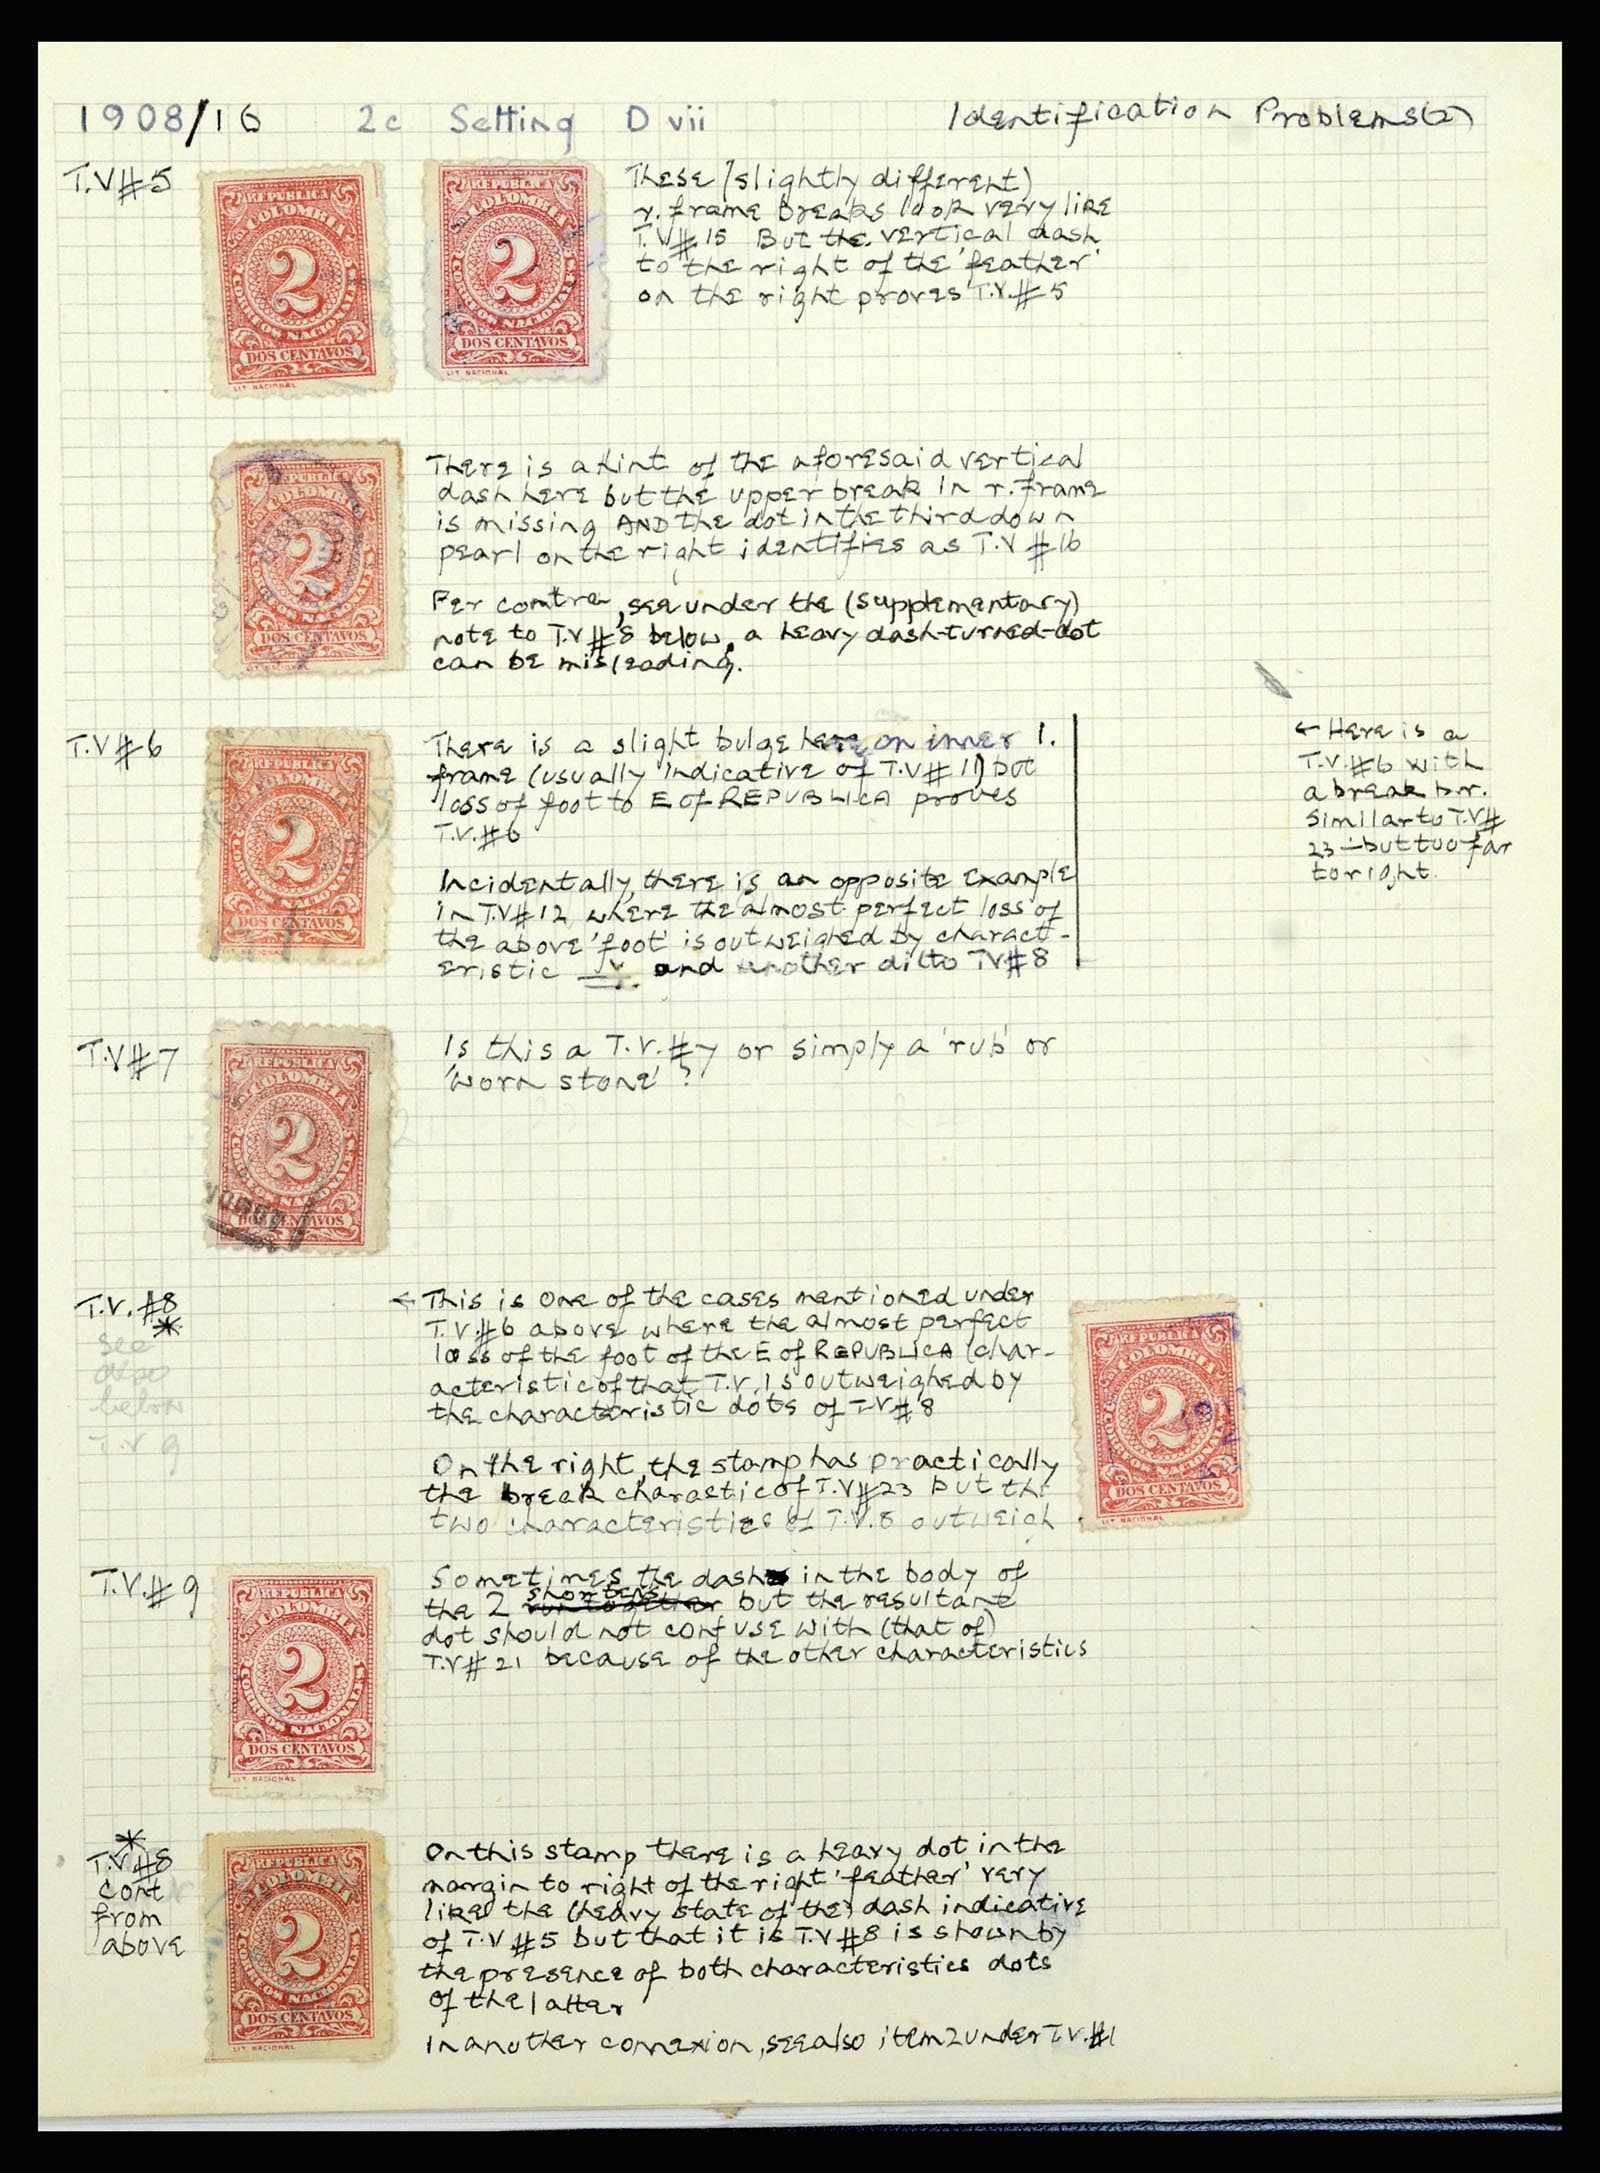 1908/16 2c Setting D vii Identification Problems (2)
T.V#5
REPUBLICA
COLOMBIA
2
CORREOS NACIONALES
DOS CENTAVOS
LIT. NACIONAL
REPUBLICA
COLOMBIA
2
CORREOS NACIONALES
DOS CENTAVOS
LIT. NACIONAL
These (slightly different)
r. frame breaks look very like
T.V#15 But the vertical dash
to the right of the 'feather'
on the right proves T.V.#5
REPUBLICA
COLOMBIA
2
CORREOS NACIONALES
DOS CENTAVOS
LIT. NACIONAL
There is a hint of the aforesaid vertical
dash here but the upper break in r. frame
is missing AND the dot in the third down
pearl on the right identifies as T.V #16
Per contra, see under the (supplementary)
note to T.V#8 below, a heavy dash-turned-dot
can be misleading.
T.V#6
REPUBLICA
COLOMBIA
2
CORREOS NACIONALES
DOS CENTAVOS
LIT. NACIONAL
There is a slight bulge here on inner l.
frame (usually indicative of T.V#11) but
loss of foot to E of REPUBLICA proves
T.V.#6
Incidentally, there is an opposite example
in T.V#12 where the almost perfect loss of
the above 'foot' is outweighed by charact-
eristic and another ditto TV#8
← Here is a
T.V.#6 with
a break b.r.
similar to T.V#
23 - but too far
to right.
T.V#7
REPUBLICA
COLOMBIA
2
CORREOS NACIONALES
DOS CENTAVOS
Is this a T.V.#7 or simply a 'rub' or
'worn stone' ?
T.V.#8
*
see
also
below
T.V 9
← This is one of the cases mentioned under
T.V.#6 above where the almost perfect
loss of the foot of the E of REPUBLICA (char-
acteristic of that T.V. is outweighed by
the characteristic dots of T.V#8
On the right, the stamp has practically
the break charastic of T.V#23 but the
two characteristics of T.V.8 outweigh
REPUBLICA
COLOMBIA
2
CORREOS NACIONALES
DOS CENTAVOS
LIT. NACIONAL
T.V.#9
REPUBLICA
COLOMBIA
2
CORREOS NACIONALES
DOS CENTAVOS
LIT. NACIONAL
Sometimes the dash in the body of
the 2 shortens but the resultant
dot should not confuse with (that of)
T.V#21 because of the other characteristics
*
T.V#8
cont
from
above
REPUBLICA
COLOMBIA
2
CORREOS NACIONALES
DOS CENTAVOS
LIT. NACIONAL
On this stamp there is a heavy dot in the
margin to right of the right 'feather' very
like the (heavy state of the) dash indicative
of T.V#5 but that it is T.V#8 is shown by
the presence of both characteristics dots
of the latter
In another connexion, see also item 2 under T.V.#1